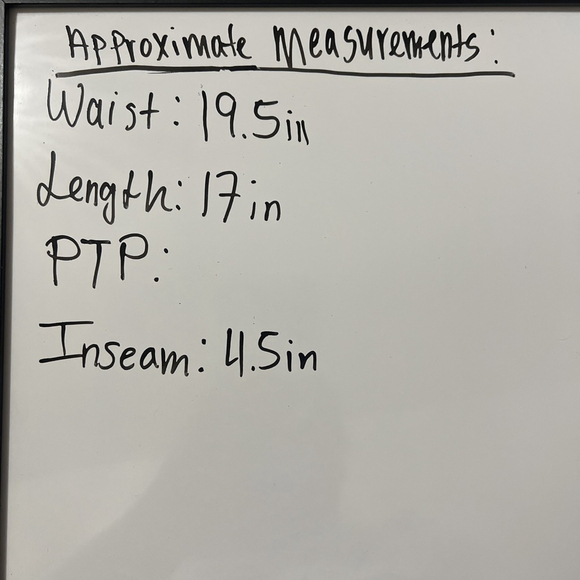 Approximate Measurements:
Waist: 19.5in
Length: 17in
PTP:
Inseam: 4.5in